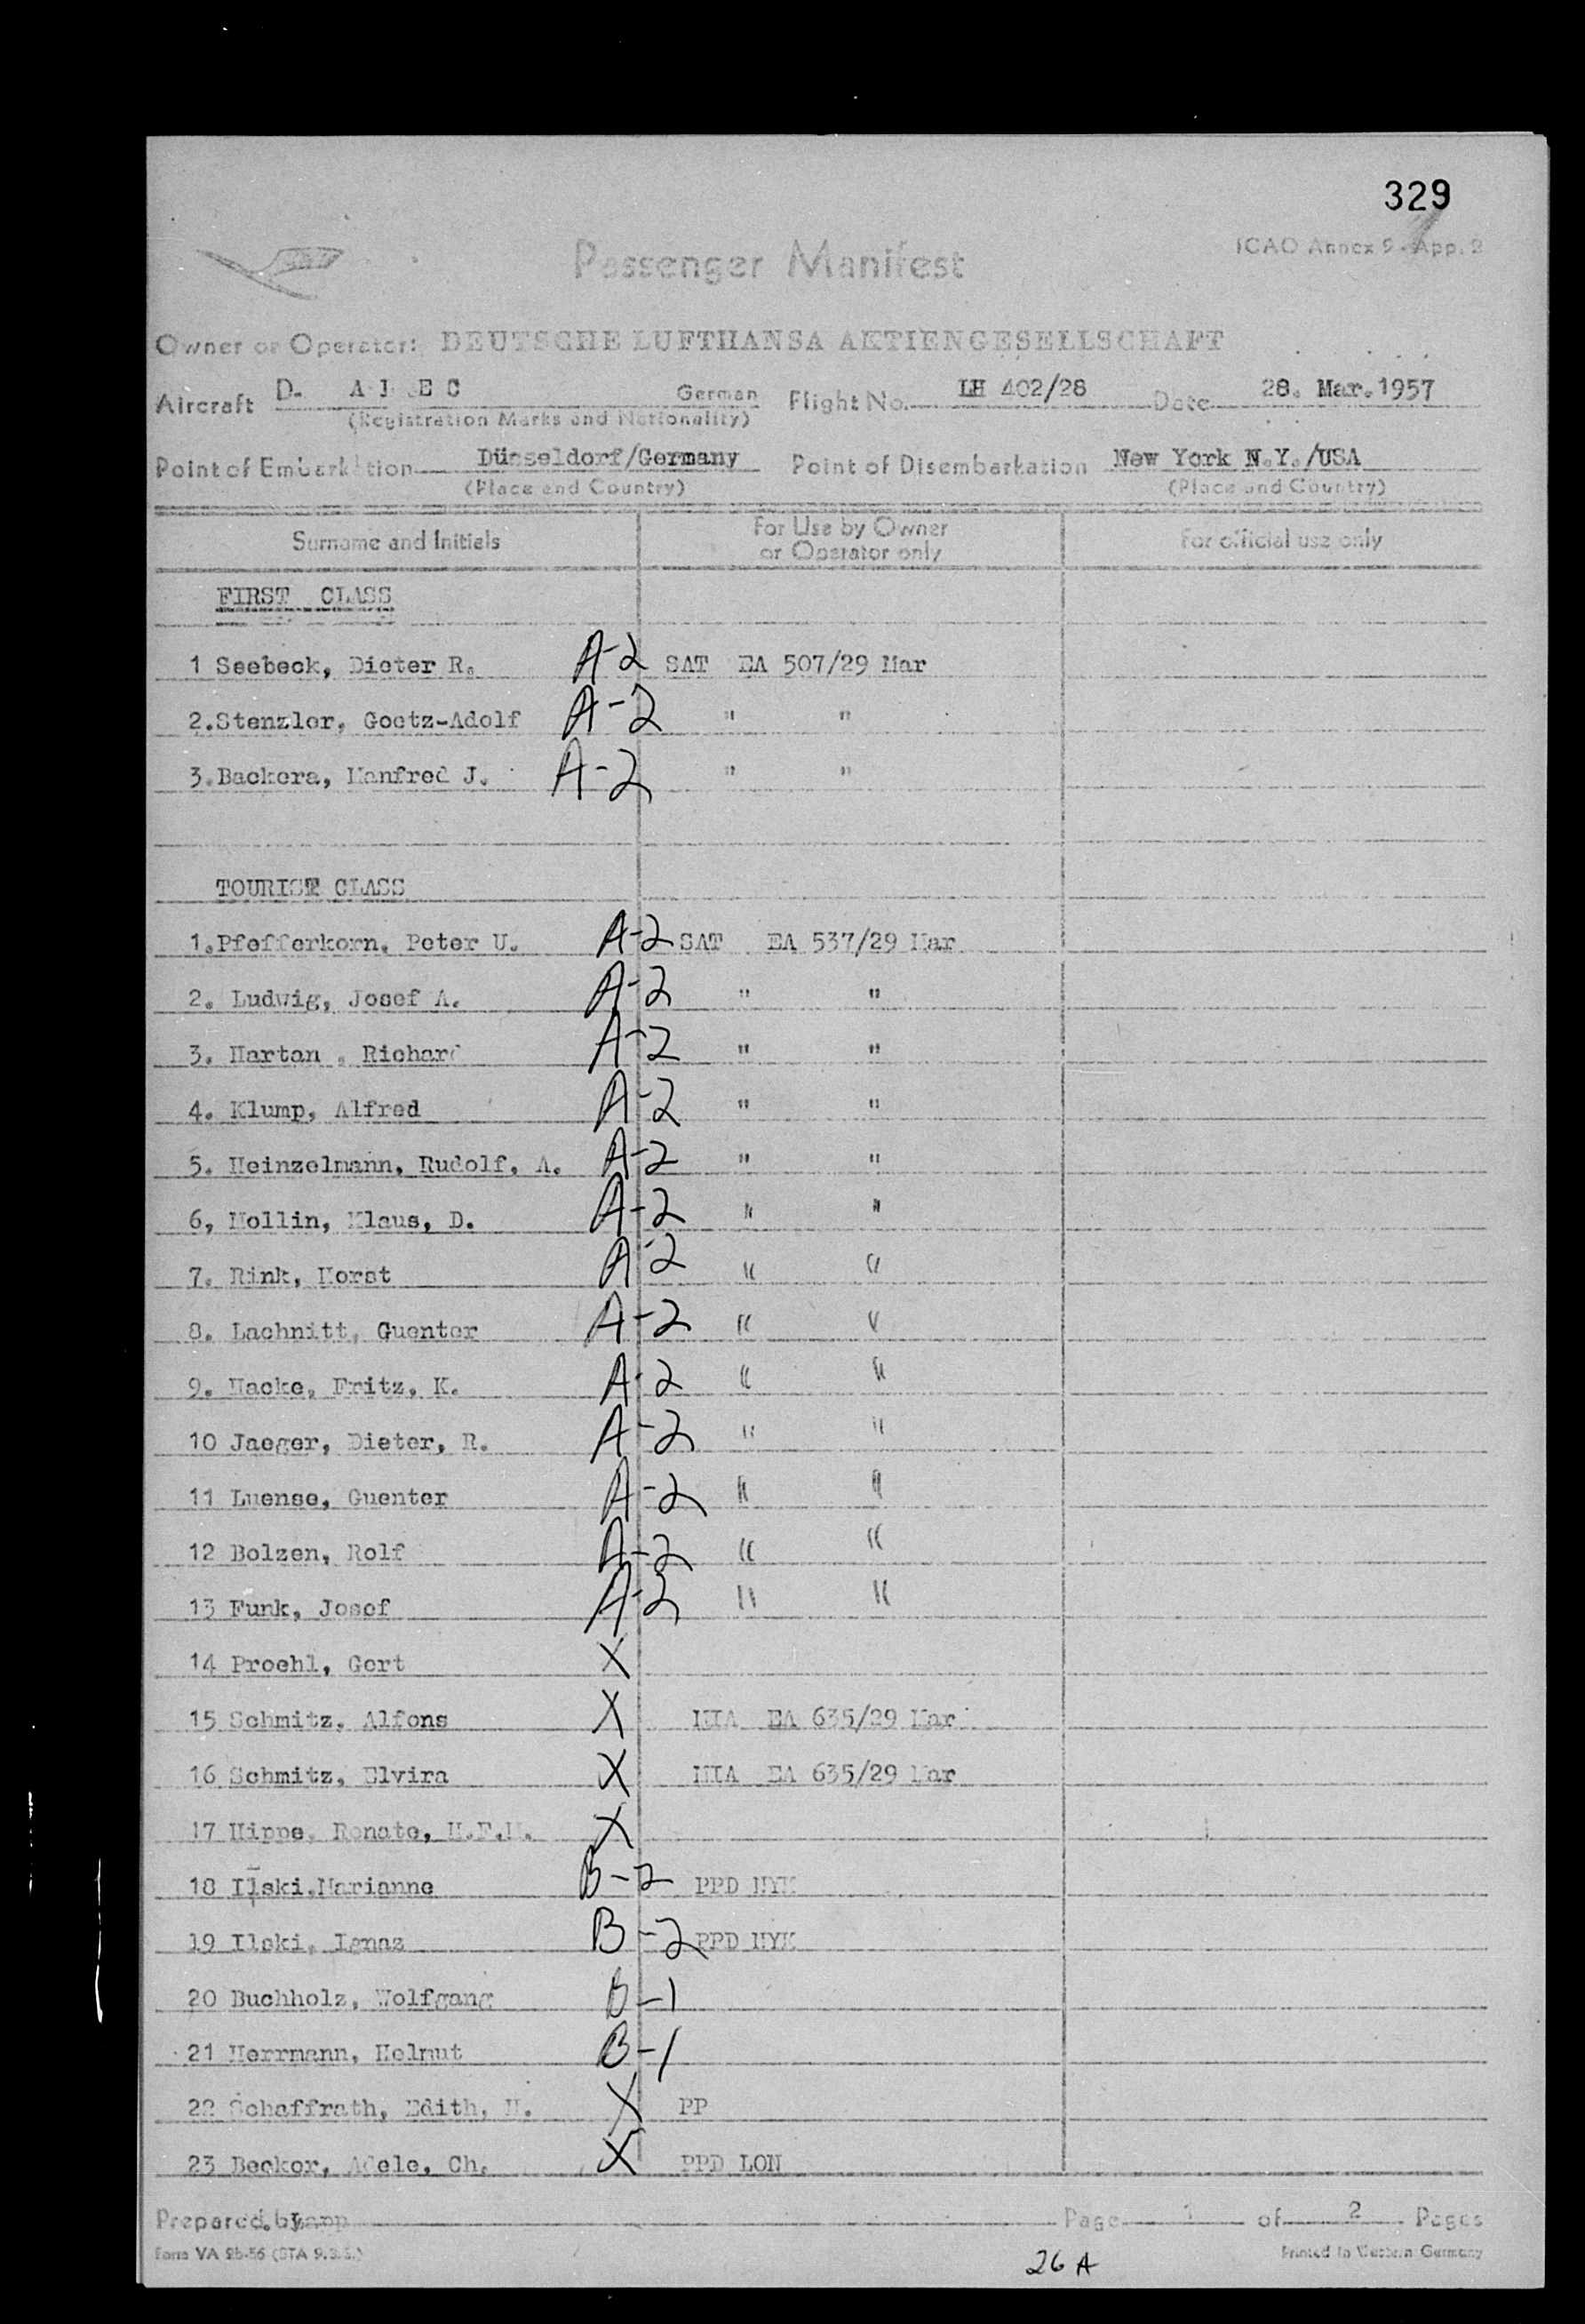 329
Passenger Manifest
ICAO Annex 9 - App. 2
Owner or Operator: DEUTSCHE LUFTHANSA AKTIENGESELLSCHAFT
Aircraft D. German Flight No. LH 402/28 Date 28. Mar. 1957
(Registration Marks and Nationality)
Point of Embarkation Düsseldorf/Germany Point of Disembarkation New York N.Y./USA
(Place and Country) (Place and Country)
Surname and Initials For Use by Owner or Operator only For official use only
FIRST CLASS
1 Seebeck, Dieter R. A-2 SAT EA 507/29 Mar
2.Stenzler, Goetz-Adolf A-2 " "
3.Backera, Manfred J. A-2 " "
TOURIST CLASS
1.Pfefferkorn, Peter U. A-2 SAT EA 537/29 Mar
2. Ludwig, Josef A. A-2 " "
3. Richard A-2 " "
4. Klump, Alfred A-2 " "
5. Heinzelmann, Rudolf, A. A-2 " "
6, Klaus, D. A-2 " "
7. Rink, Horst A-2 " "
8. Lachnitt, Guenter A-2 " "
9. Fritz, K. A-2 " "
10 Jaeger, Dieter, R. A-2 " "
11 Luense, Guenter A-2 " "
12 Bolzen, Rolf A-2 " "
13 Funk, Josef A-2 " "
14 Proehl, Gert X
15 Schmitz, Alfons X MIA EA 635/29 Mar
16 Schmitz, Elvira X MIA EA 635/29 Mar
17 Hippe, Renate, X
18 Ilski,Marianne B-2 PPD NYK
19 Ilski, Ignaz B-2 PPD NYK
20 Buchholz, Wolfgang B-1
21 Herrmann, Helmut B-1
22 Schaffrath, Edith, X PP
23 Becker, Adele, Ch. X PPD LON
Prepared by Page 1 of 2 Pages
Form VA 2b-56 Printed in Western Germany
26 A